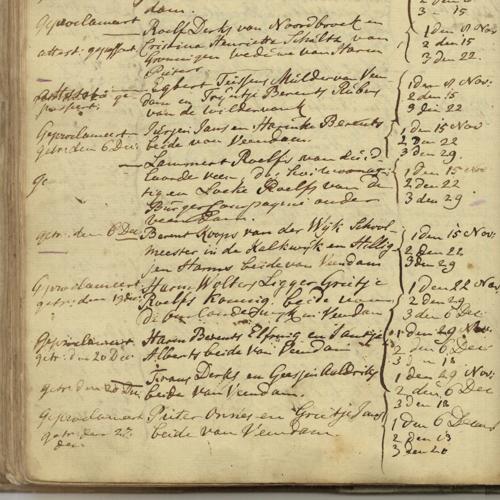 dam.
geproclameert Roelf Derks van Noordbroek en
attest: gepasseert Cristina Henriette Schultz van
Groningen weduwe van Harm
Pieters
1 den 8 Nov
2 den 15
3 den 22
Egbert Tiessens Mulder van Veen
dam en Trijntje Berents Kubers
van de Wildervank
1 den 8 Nov
2 den 15
3 den 22
Geproclameert Jurjen Jans en Harmke Berents
getr: den 6 Dec beide van Veendam.
1 den 15 Nov
2 den 22
3 den 29.
Lammert Roelfs van
tig en Roelfs van de
Burger Compagnie onder
Veendam.
1 den 15 Nov
2 den 22
3 den 29
getr: den 6 Dec Berent Koops van der Wijk School-
meester in de Kalkwijk en Hillig
jen Harms beide van Veendam
1 den 15 Nov
2 den 22
3 den 29
Geproclameert Harm Wolters Ligger Grietje
Roelfs Koning, beide
Veendam
1 den 22 Nov
2 den 29
3 den 6 Dec
Geproclameert Harm Berents en Jantje
getr: den 20 Dec Alberts beide van Veendam
1 den 29 Nov
2 den 6 Dec
3 den 13
getr: den 20 Dec Frans Derks en Geesjen Aaldriks
beide van Veendam.
1 den 29 Nov:
2 den 6 Dec
3 den 13
geproclameert Pieter Onnes en Grietje Jans
getr: den 27 beide van Veendam
dec
1 den 6 Decem
2 den 13
3 den 20